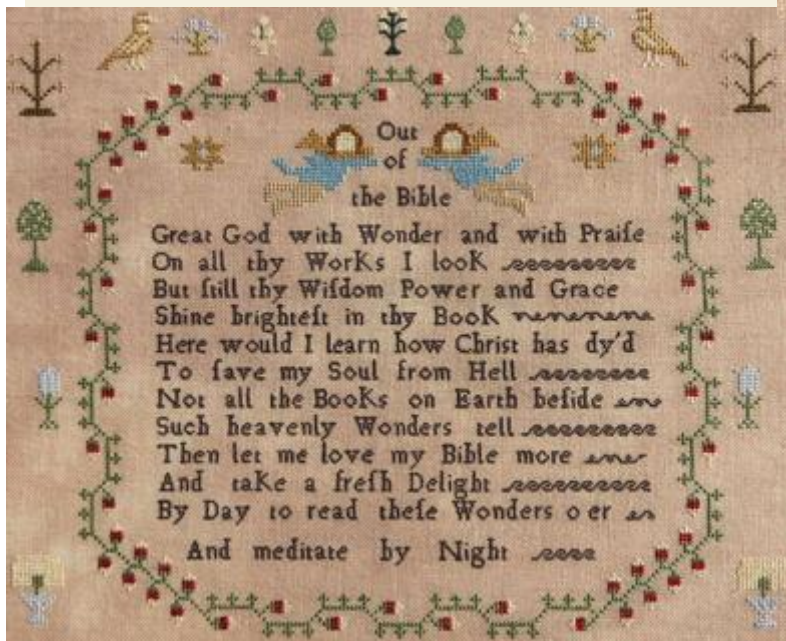 Out
of
the Bible
Great God with Wonder and with Praiſe
On all thy WorKs I looK
But ſtill thy Wiſdom Power and Grace
Shine brighteſt in thy BooK
Here would I learn how Christ has dy'd
To ſave my Soul from Hell
Not all the BooKs on Earth beſide
Such heavenly Wonders tell
Then let me love my Bible more
And taKe a freſh Delight
By Day to read theſe Wonders o er
And meditate by Night